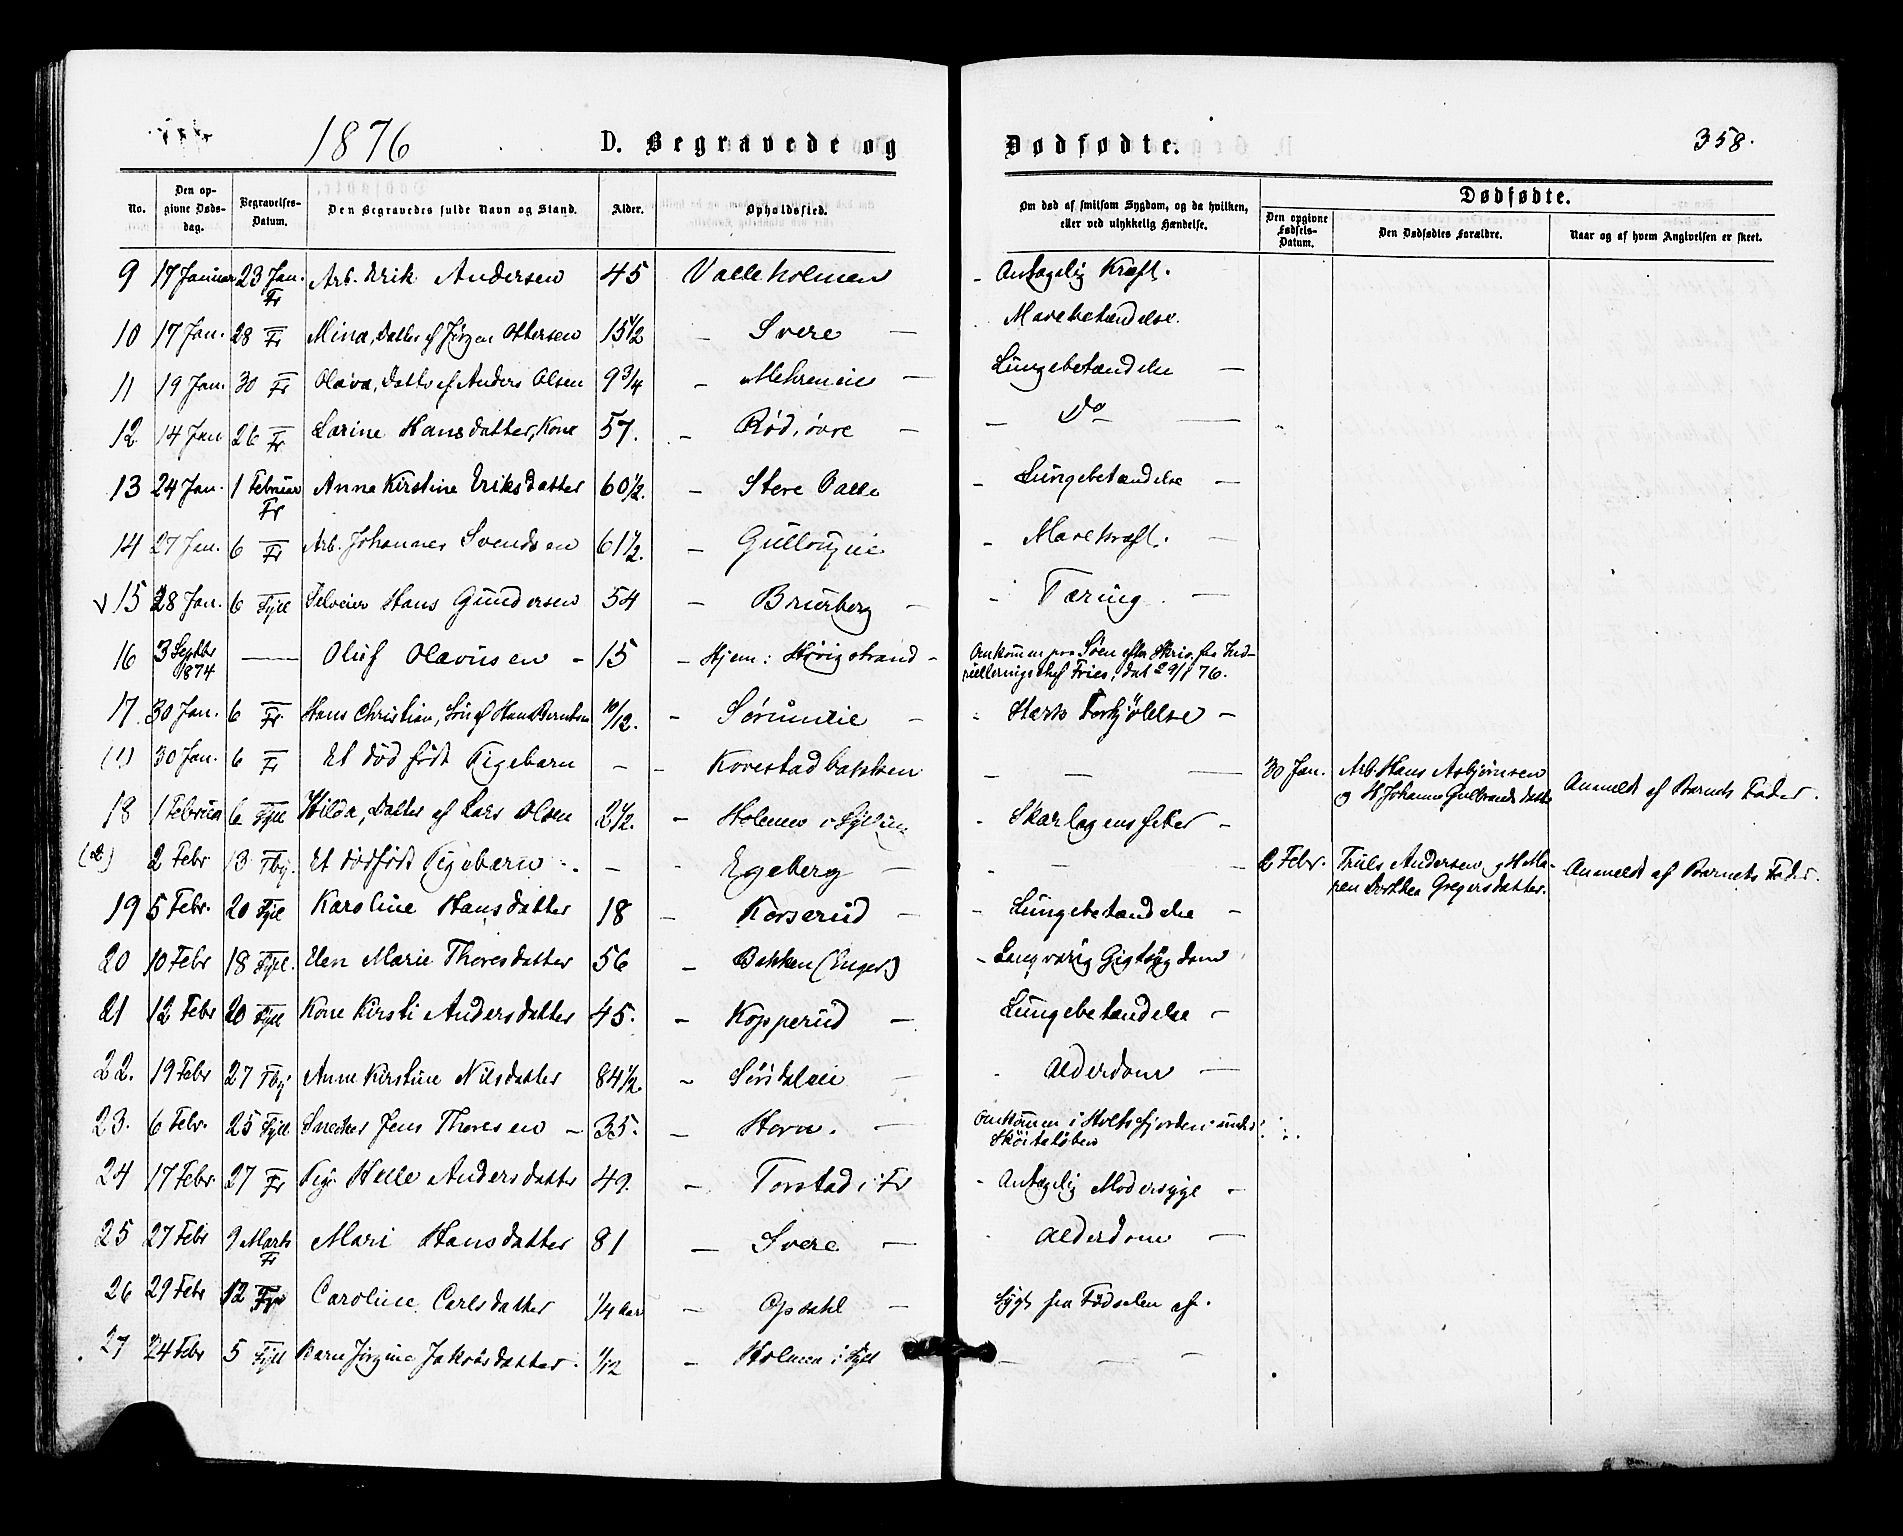 1876
D. Begravede og
Dødfødte.
358.
No.
Den op-
givne Døds-
dag.
Begravelses-
Datum.
Den Begravedes fulde Navn og Stand.
Alder.
Opholdssted.
Om død af smitsom Sygdom, og da hvilken,
eller ved ulykkelig Hændelse.
Dødfødte.
Den opgivne
Fødsels-
Datum.
Den Dødfødtes Forældre.
Naar og af hvem Angivelsen er skeet.
9 17 Januar 23 Jan. Fr Arb. Erik Andersen 45 Valleholmen - Antagelig Kræft.
10 17 Jan. 28 — Fr Mina, Datter af Jørgen Ottersen 15 1/2 - Svere — Mavebetændelse.
11 19 Jan. 30 — Fr Olava, Datter af Anders Olsen 9 3/4 - Mehreneie — Lungebetændelse —
12 14 Jan 26 — Fr Larine Hansdatter, Kone 57. - Rød, øvre — Do —
13 24 Jan. 1 Februar Fr Anne Kirstine Eriksdatter 60 1/2. - Store Valle - Lungebetændelse —
14 27 Jan. 6 — Fr Arb. Johannes Svendsen 61 1/2. - - Mavekræft. —
15 28 Jan. 6 — Syll Selveier Hans Gundersen 54 - Brurberg — - Tæring. —
16 3 Septbr 1874 — Oluf Olavusen - 15 - Hjem: Høvigstrand - Omkommen paa Søen efter Skriv. fra Ind-
rulleringschef Fries, dat 29/1 76.
17. 30 Jan. 6 — Fr. Hans Christian, Søn af Hans Berntsen 10/12. - Sørumeie — - Stærk Forkjølelse —
(1) 30 Jan. 6 — Fr Et dødfødt Pigebarn - - Kovestadbakken - — — 30 Jan. Arb. Hans Asbjørnsen
og H Johanne Gulbrandsdatter Anmeldt af Barnets Fader.
18 1 Februar 6 Syll Hilda, Datter af Lars Olsen 2 1/2. - Holmen i Sylling - Skarlagensfeber -
(2) 2 Febr 13 Tbj. Et dødfødt Pigebarn - — - Egeberg — - — — 2 Febr. Truls Andersen og H Ma-
ren Dorthea Gregersdatter. Anmeldt af Barnets Fader.
19 5 Febr. 20 Syll Karoline Hansdatter 18 - Korserud — - Lungebetændelse —
20 10 Febr 18 Syll. Elen Marie Thoresdatter 56 - Bakken (Enger) - Langvarig Gigtsygdom
21 12 Febr 20 Syll Kone Kirsti Andersdatter 45. - Kopperud — Lungebetændelse -
22. 19 Febr 27 Tbj Anne Kirstine Nilsdatter 84 1/2. - Sørsdaleie — - Alderdom —
23. 6 Febr. 25 Syll Snedker Jens Thoresen - 35. - Horn. — Omkommen i Holtsfjorden under
Skøiteløben
24 17 Febr. 27 — Fr Pige Helle Andersdatter 49. - Torstad i Fr - Antagelig Modersyge -
25 27 Febr 9 Marts Fr Mari Hansdatter 81 — Svere — - Alderdom —
26 29 Febr 12 Caroline Carlsdatter 1/4 aar - Opsahl — Sygt fra Fødselen af.
27 24 Febr 5 — Syll Barn Jørgine Jakobsdatter. 1/12 - Holmen i Syll - — -